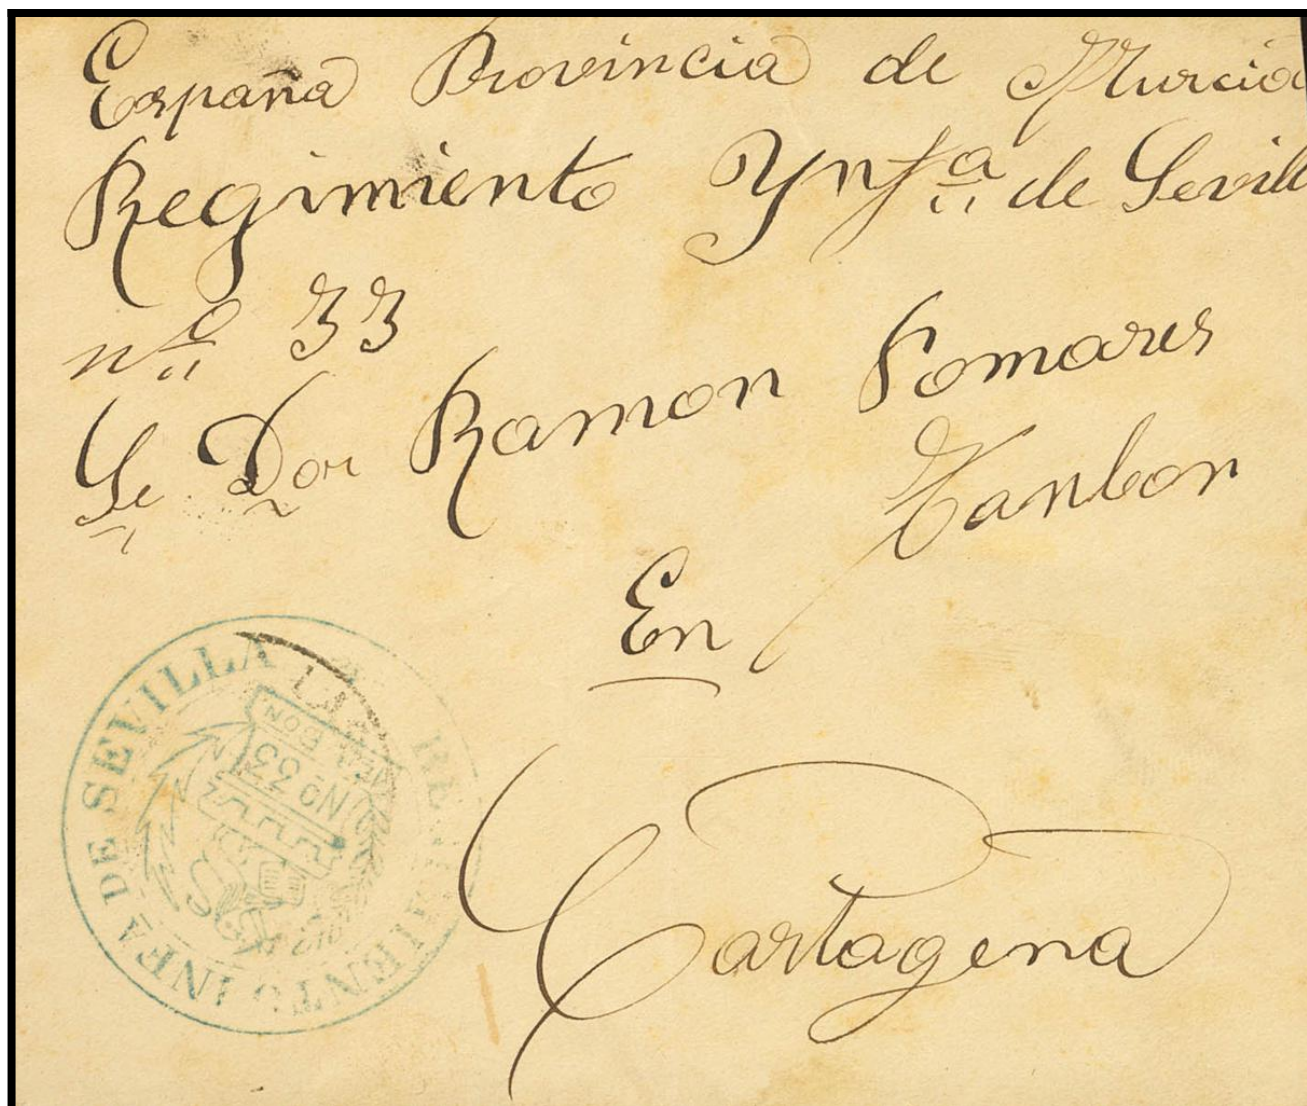 España Provincia de Murcia
Regimiento Ynfª de Sevill
nº 33
Se Don Ramon Pomares
Tanbor
En
Cartagena
REGIMIENTO INFA DE SEVILLA
Nº 33
BON